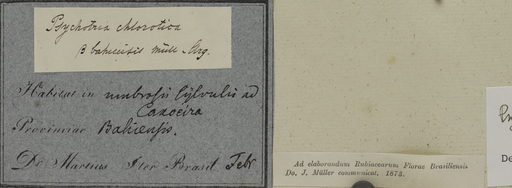 Psychotria chlorotica
β bahiensis Müll. Arg.
Habitat in umbrosis Sylvulis ad
Caxoeira
Provinciae Bahiensis.
Dr. Martius Iter Brasil. Febr
Ad elaborandum Rubiacearum Florae Brasiliensis
Do. J. Müller communicat. 1873.
De